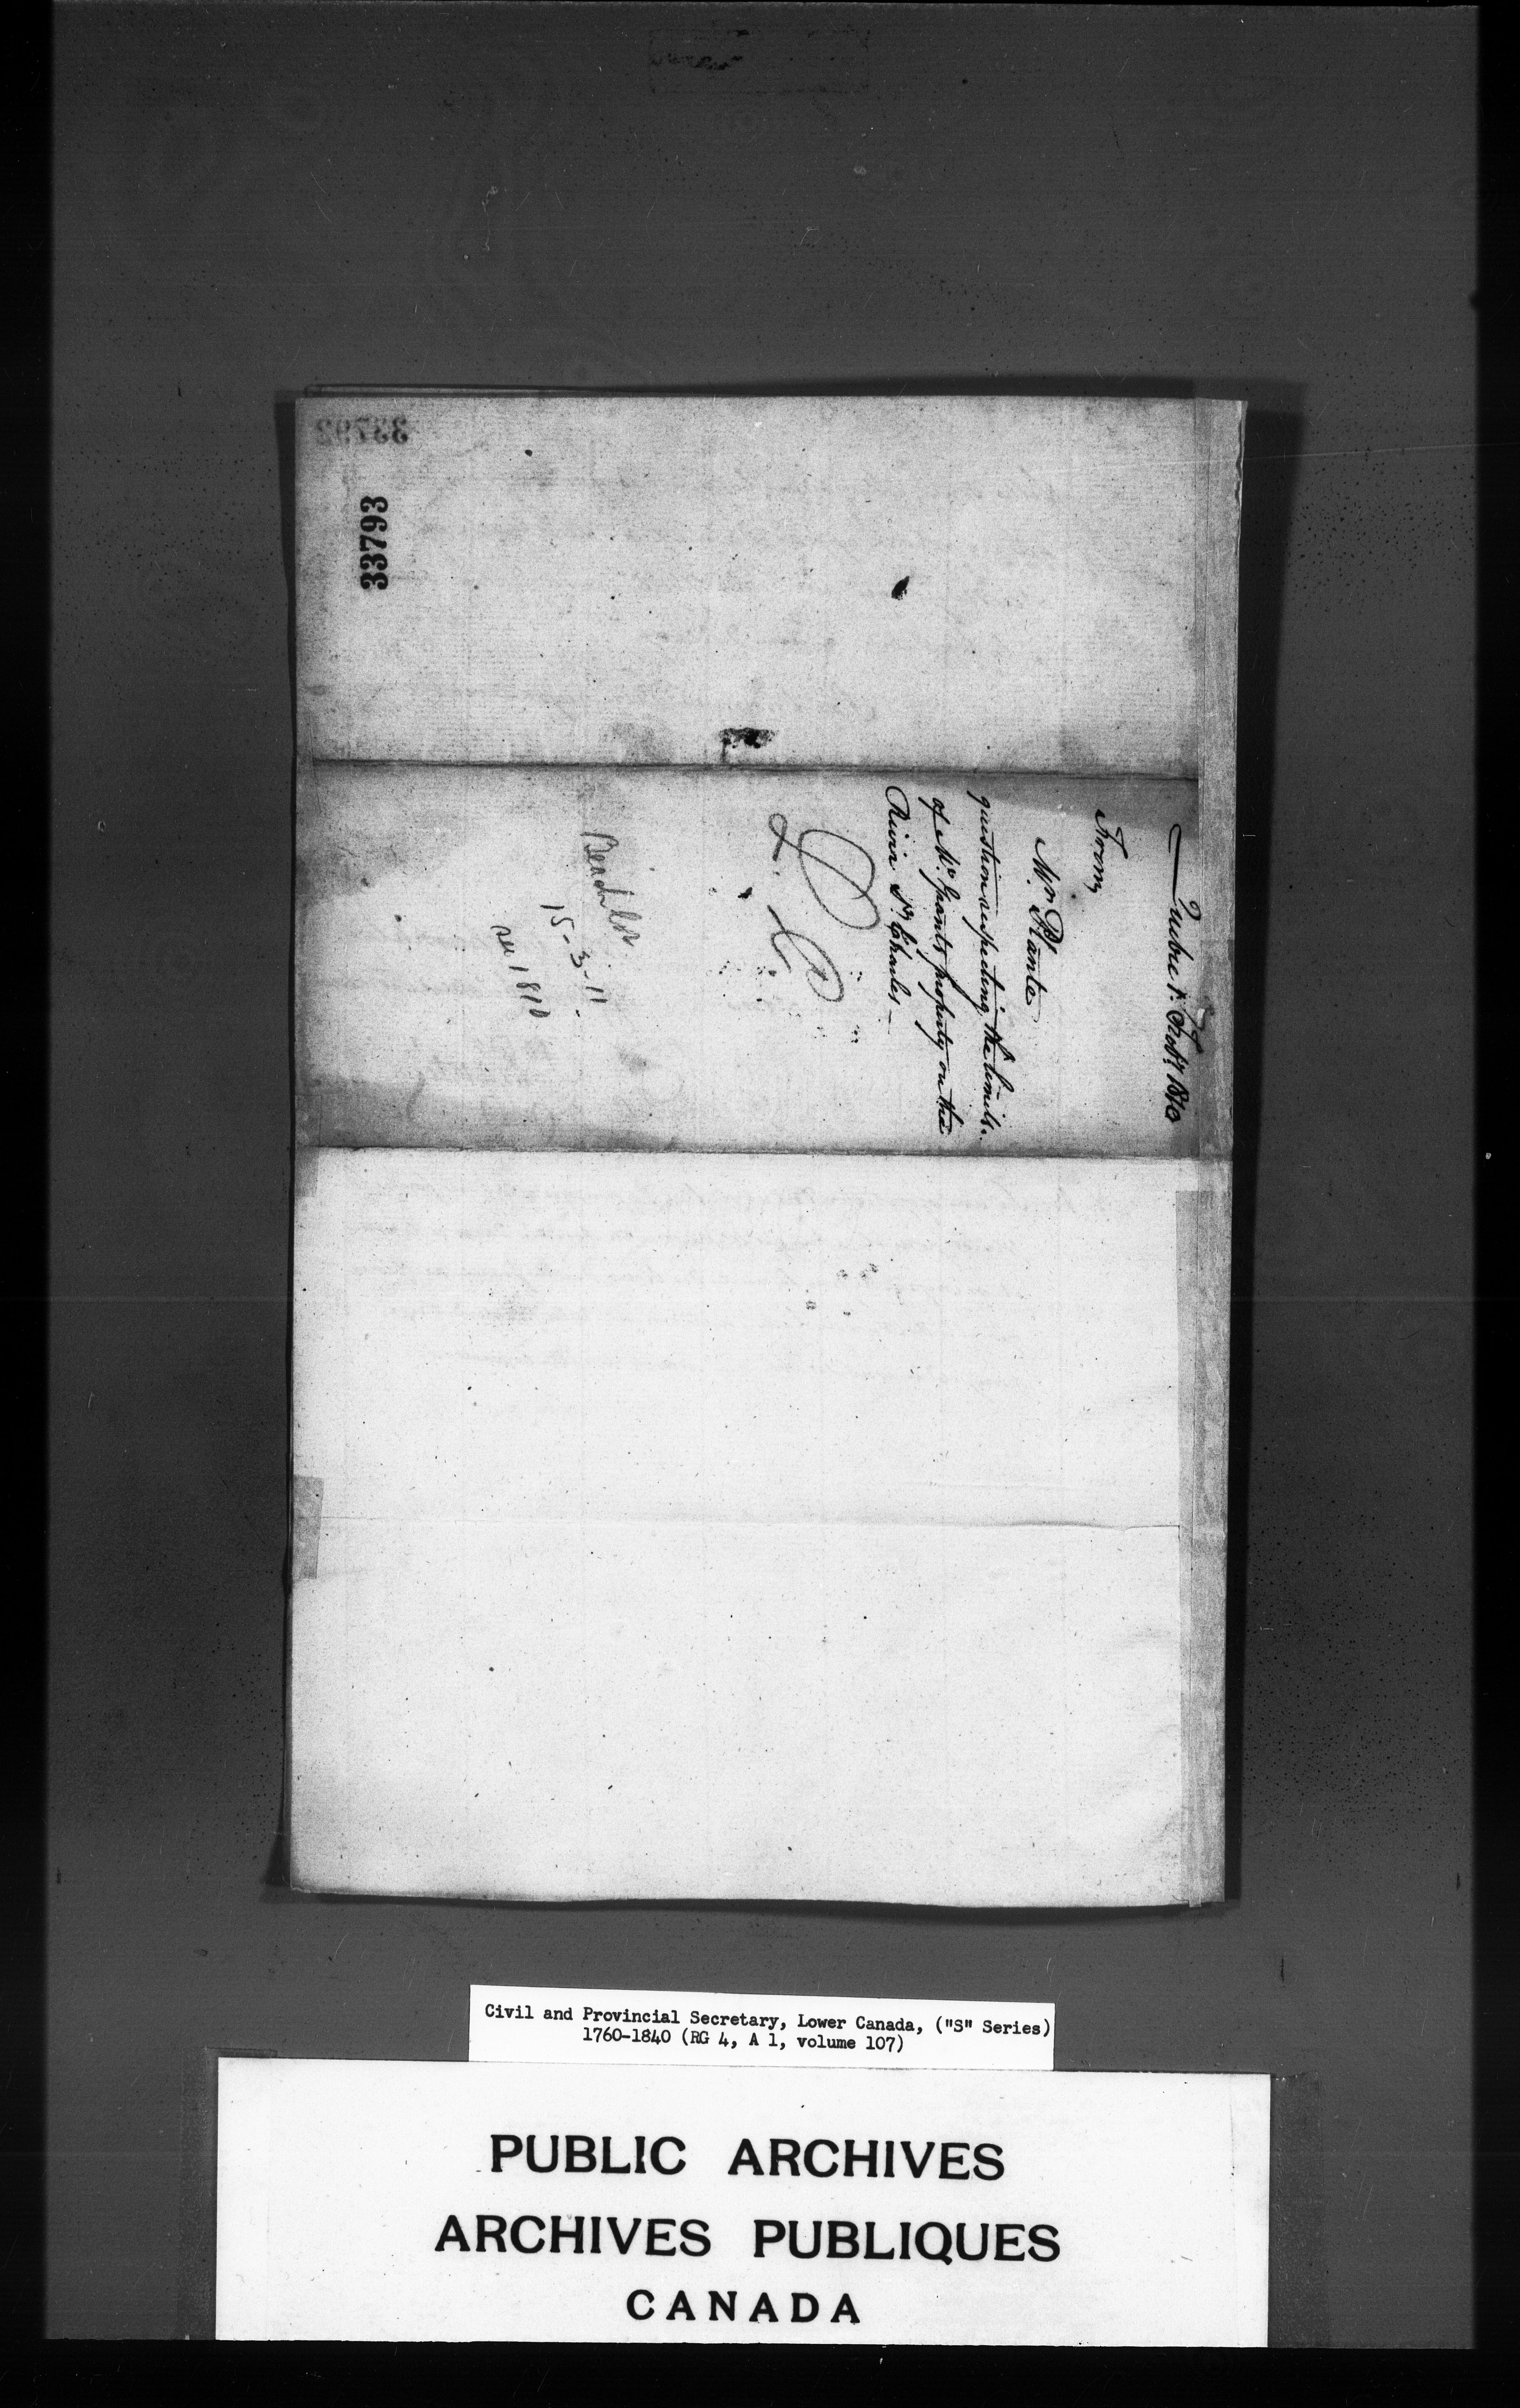 33792
33793
Quebec 1st Feby 1810
From
Mr. Plante
question respecting the limits
of Mr. Grants property on the
River St. Charles—
Beach lot
15-3-11
1810
Civil and Provincial Secretary, Lower Canada, ("S" Series)
1760-1840 (RG 4, A 1, volume 107)
PUBLIC ARCHIVES
ARCHIVES PUBLIQUES
CANADA